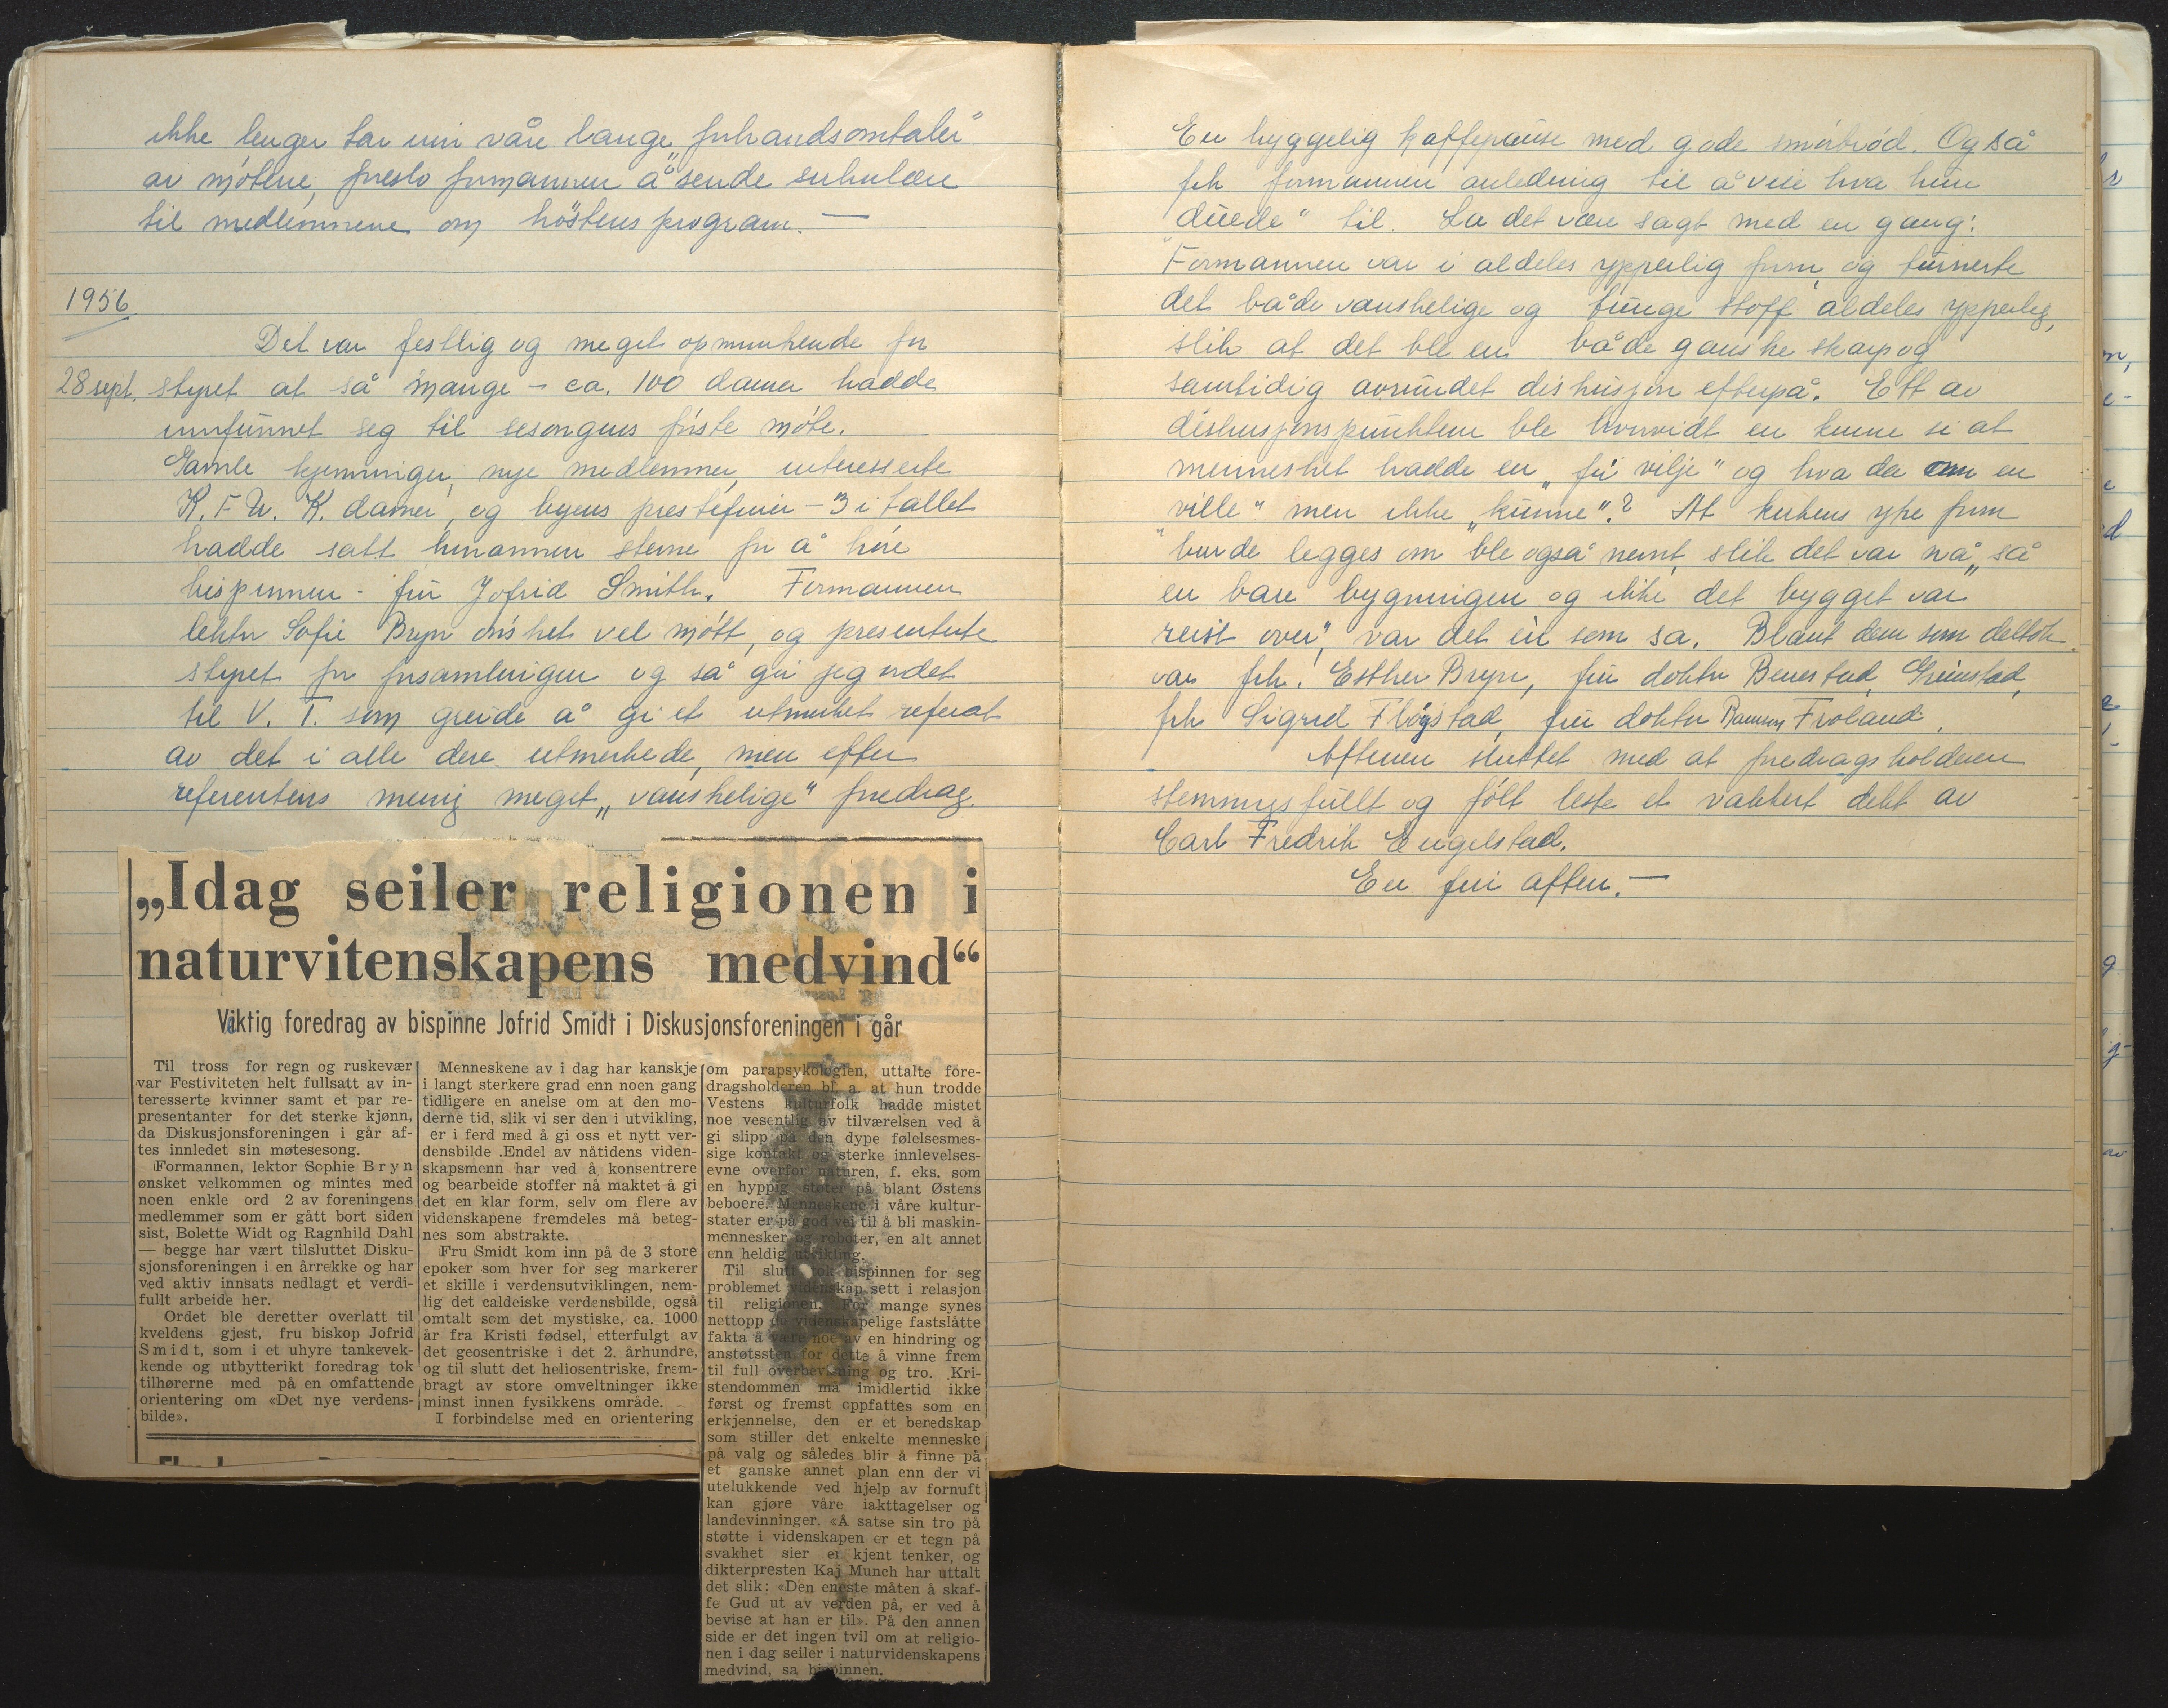 ikke lenger tar inn våre lange „forhandsomtaler"
av møtene, foreslo formannen å sende sirkulære
til medlemmene om høstens program. —
1956
Det var festlig og meget opmuntrende for
28 sept. styret at så mange – ca. 100 damer hadde
innfunnet seg til sesongens første møte.
Gamle kjenninger, nye medlemmer, interesserte
K.F.U.K. damer, og byens prestefruer – 3 i tallet
hadde satt hinannen stevne for å høre
bispinnen – fru Jofrid Smith. Formannen
lektor Sofie Bryn ønsket vel møtt, og presenterte
styret for forsamlingen og så gir jeg ordet
til V. T. som greide å gi et utmerket referat
av det i alle dere utmerkede, men efter
referentens mening meget „vanskelige" foredrag.
„Idag seiler religionen i
naturvitenskapens medvind“
Viktig foredrag av bispinne Jofrid Smidt i Diskusjonsforeningen i går
Til tross for regn og ruskevær
var Festiviteten helt fullsatt av in-
teresserte kvinner samt et par re-
presentanter for det sterke kjønn,
da Diskusjonsforeningen i går af-
tes innledet sin møtesesong.
Formannen, lektor Sophie Bryn
ønsket velkommen og mintes med
noen enkle ord 2 av foreningens
medlemmer som er gått bort siden
sist, Bolette Widt og Ragnhild Dahl
— begge har vært tilsluttet Disku-
sjonsforeningen i en årrekke og har
ved aktiv innsats nedlagt et verdi-
fullt arbeide her.
Ordet ble deretter overlatt til
kveldens gjest, fru biskop Jofrid
Smidt, som i et uhyre tankevek-
kende og utbytterikt foredrag tok
tilhørerne med på en omfattende
orientering om «Det nye verdens-
bilde».
Menneskene av i dag har kanskje
i langt sterkere grad enn noen gang
tidligere en anelse om at den mo-
derne tid, slik vi ser den i utvikling,
er i ferd med å gi oss et nytt ver-
densbilde .Endel av nåtidens viden-
skapsmenn har ved å konsentrere
og bearbeide stoffer nå maktet å gi
det en klar form, selv om flere av
videnskapene fremdeles må beteg-
nes som abstrakte.
Fru Smidt kom inn på de 3 store
epoker som hver for seg markerer
et skille i verdensutviklingen, nem-
lig det caldeiske verdensbilde, også
omtalt som det mystiske, ca. 1000
år fra Kristi fødsel, etterfulgt av
det geosentriske i det 2. århundre,
og til slutt det heliosentriske, frem-
bragt av store omveltninger ikke
minst innen fysikkens område.
I forbindelse med en orientering
om parapsykologien, uttalte fore-
dragsholderen bl. a. at hun trodde
Vestens kulturfolk hadde mistet
noe vesentlig av tilværelsen ved å
gi slipp på den dype følelsesmes-
sige kontakt og sterke innlevelses-
evne overfor naturen, f. eks. som
en hyppig støter på blant Østens
beboere. Menneskene i våre kultur-
stater er på god vei til å bli maskin-
mennesker og roboter, en alt annet
enn heldig utvikling.
Til slutt tok bispinnen for seg
problemet videnskap sett i relasjon
til religionen. For mange synes
nettopp de videnskapelige fastslåtte
fakta å være noe av en hindring og
anstøtssten for dette å vinne frem
til full overbevisning og tro. Kri-
stendommen må imidlertid ikke
først og fremst oppfattes som en
erkjennelse, den er et beredskap
som stiller det enkelte menneske
på valg og således blir å finne på
et ganske annet plan enn der vi
utelukkende ved hjelp av fornuft
kan gjøre våre iakttagelser og
landevinninger. «Å satse sin tro på
støtte i videnskapen er et tegn på
svakhet sier en kjent tenker, og
dikterpresten Kaj Munch har uttalt
det slik: «Den eneste måten å skaf-
fe Gud ut av verden på, er ved å
bevise at han er til». På den annen
side er det ingen tvil om at religio-
nen i dag seiler i naturvidenskapens
medvind, sa bispinnen.
En hyggelig kaffepause med gode smørbrød. Også
fik formannen anledning til å vise hva hun
„duede" til. La det være sagt med en gang:
Formannen var i aldeles ypperlig form, og turnerte
det både vanskelige og tunge stoff aldeles ypperlig,
slik at det ble en både ganske skarp og
samtidig avrundet diskusjon efterpå. Ett av
diskusjonspunktene ble hvorvidt en kunne si at
mennesket hadde en „fri vilje" og hva da om en
„ville" men ikke „kunne"? At kirkens ytre form
burde legges om ble også nevnt, slik det var nå „så
en bare bygningen og ikke det bygget var
reist over", var det en som sa. Blant dem som deltok
var frk. Esther Bryn, fru doktor Benestad, Grimstad,
frk Sigrid Fløgstad, fru doktor Ramm Froland.
Aftenen sluttet med at foredragsholderen
stemningsfullt og følt leste et vakkert dikt av
Carl Fredrik Engelstad.
En fin aften. —